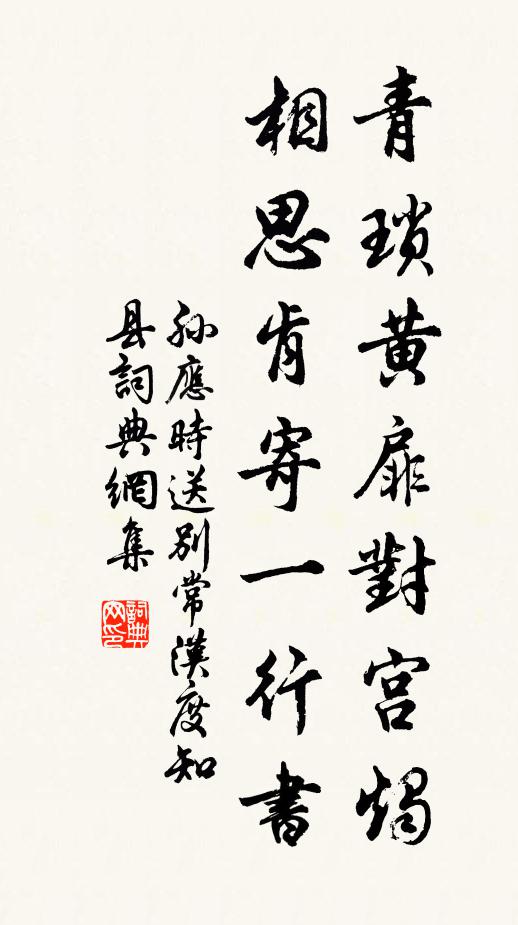 青瑣黃扉對宮燭
相思肯寄一行書
孫應時送別常漢度知
县詞典網集
詞典网印